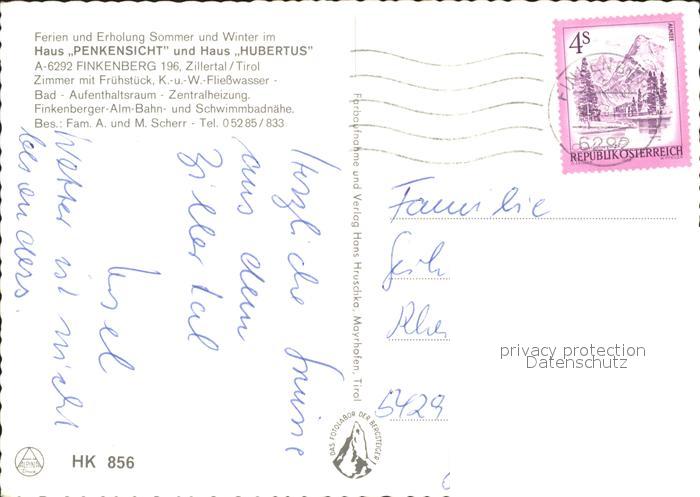 Ferien und Erholung Sommer und Winter im
Haus „PENKENSICHT" und Haus „HUBERTUS"
A-6292 FINKENBERG 196, Zillertal/Tirol
Zimmer mit Frühstück, K.-u.-W.-Fließwasser -
Bad - Aufenthaltsraum - Zentralheizung.
Finkenberger-Alm-Bahn- und Schwimmbadnähe.
Bes.: Fam. A. und M. Scherr - Tel. 0 52 85 / 833
Herzliche Grüsse
aus dem
Zillertal
Wetter ist nicht
besonders.
Farbaufnahme und Verlag Hans Hruschka, Mayrhofen, Tirol
DAS FOTOLABOR DER BERGSTEIGER
ALPINA
HK 856
4S
ALMSEE
REPUBLIK ÖSTERREICH
6292
Familie
5429
privacy protection
Datenschutz